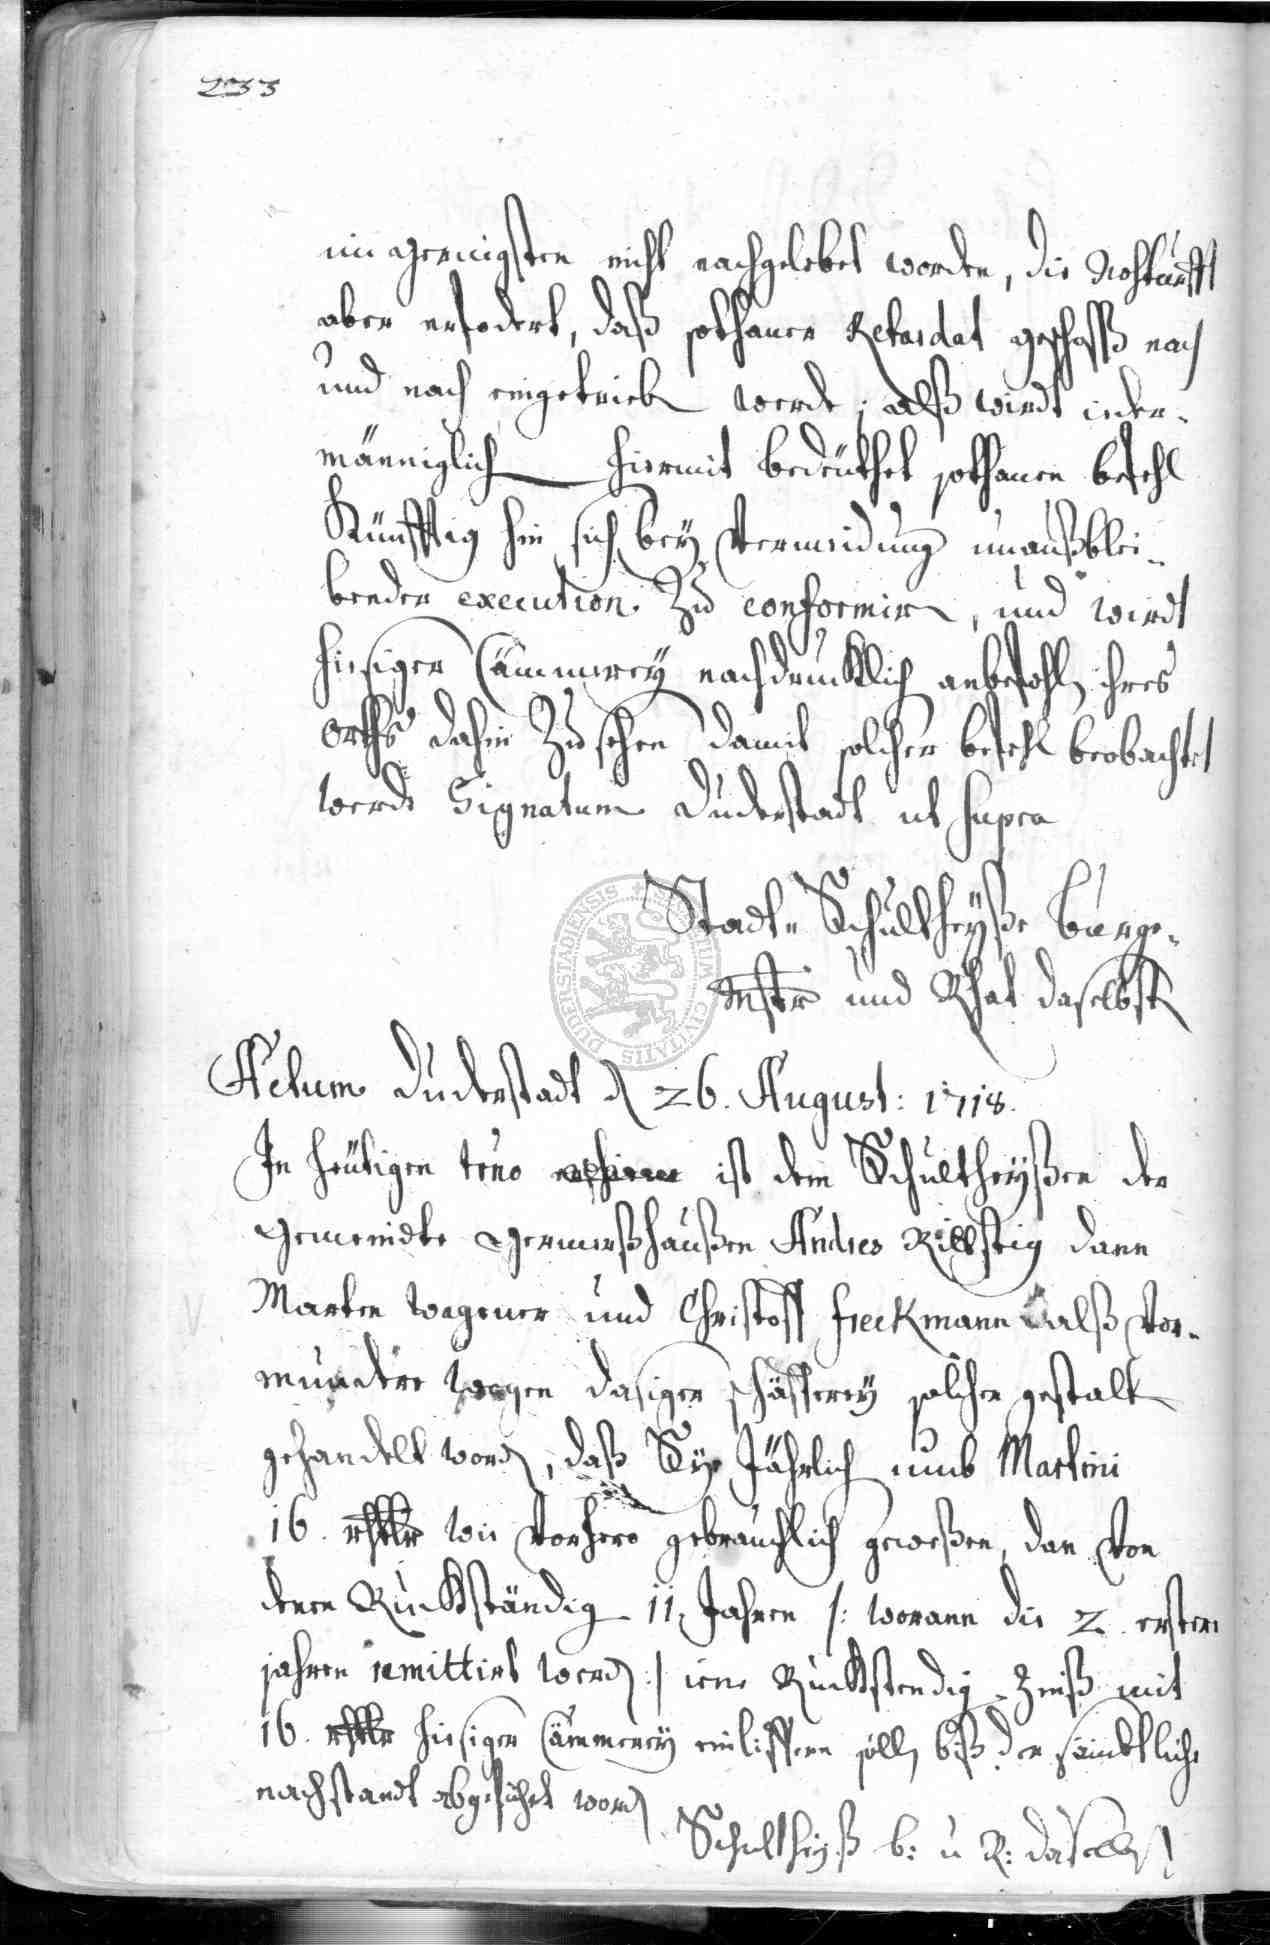 233
im geringsten nicht nachgelebet worden, die Nohturfft
aber erfodert, daß sothaner Retardat geschoß nach
und nach eingetrieben werde; alß wirdt ieder-
männiglich hiermit bedeüthet sothanen befehl
Künfftig hin sich bey Vermeidung unaußblei-
bender execution Zu conformiren, und wirdt
hiesiger Cämmerey nachdrucklich anbefohlen ihres
orths dahin Zu sehen damit solcher befehl beobachtet
werde Signatum Duderstadt ut supra
Stadt- Schultheyße burge-
mstr und Rhat daselbst
SIGILLUM CIVITATIS DUDERSTADIENSIS
Actum Duderstadt den 26. August: 1718.
In heütigen tr̄no ist dem Schultheyßen der
Gemeindte Germerßhaußen Andres Rillstig dann
Marten Wagener und Christoff freckmann alß Vor-
mundere wegen dasiger schäfferey solcher gestalt
gehandelt worden, daß Sye Jährlich umb Martini
16. rthlr wie Vorhero gebrauchlich geweßen, dan Von
denen Ruckständig 11, Jahren /: worann die 2 erstere
jahren remittirt werden :/ iene Ruckstendig Zinß mit
16. rthlr hiesiger Cämmerey einliffern sollen biß der sämbtliche
nachstandt abgeführt worden
Schultheyß b: u R: daselbst